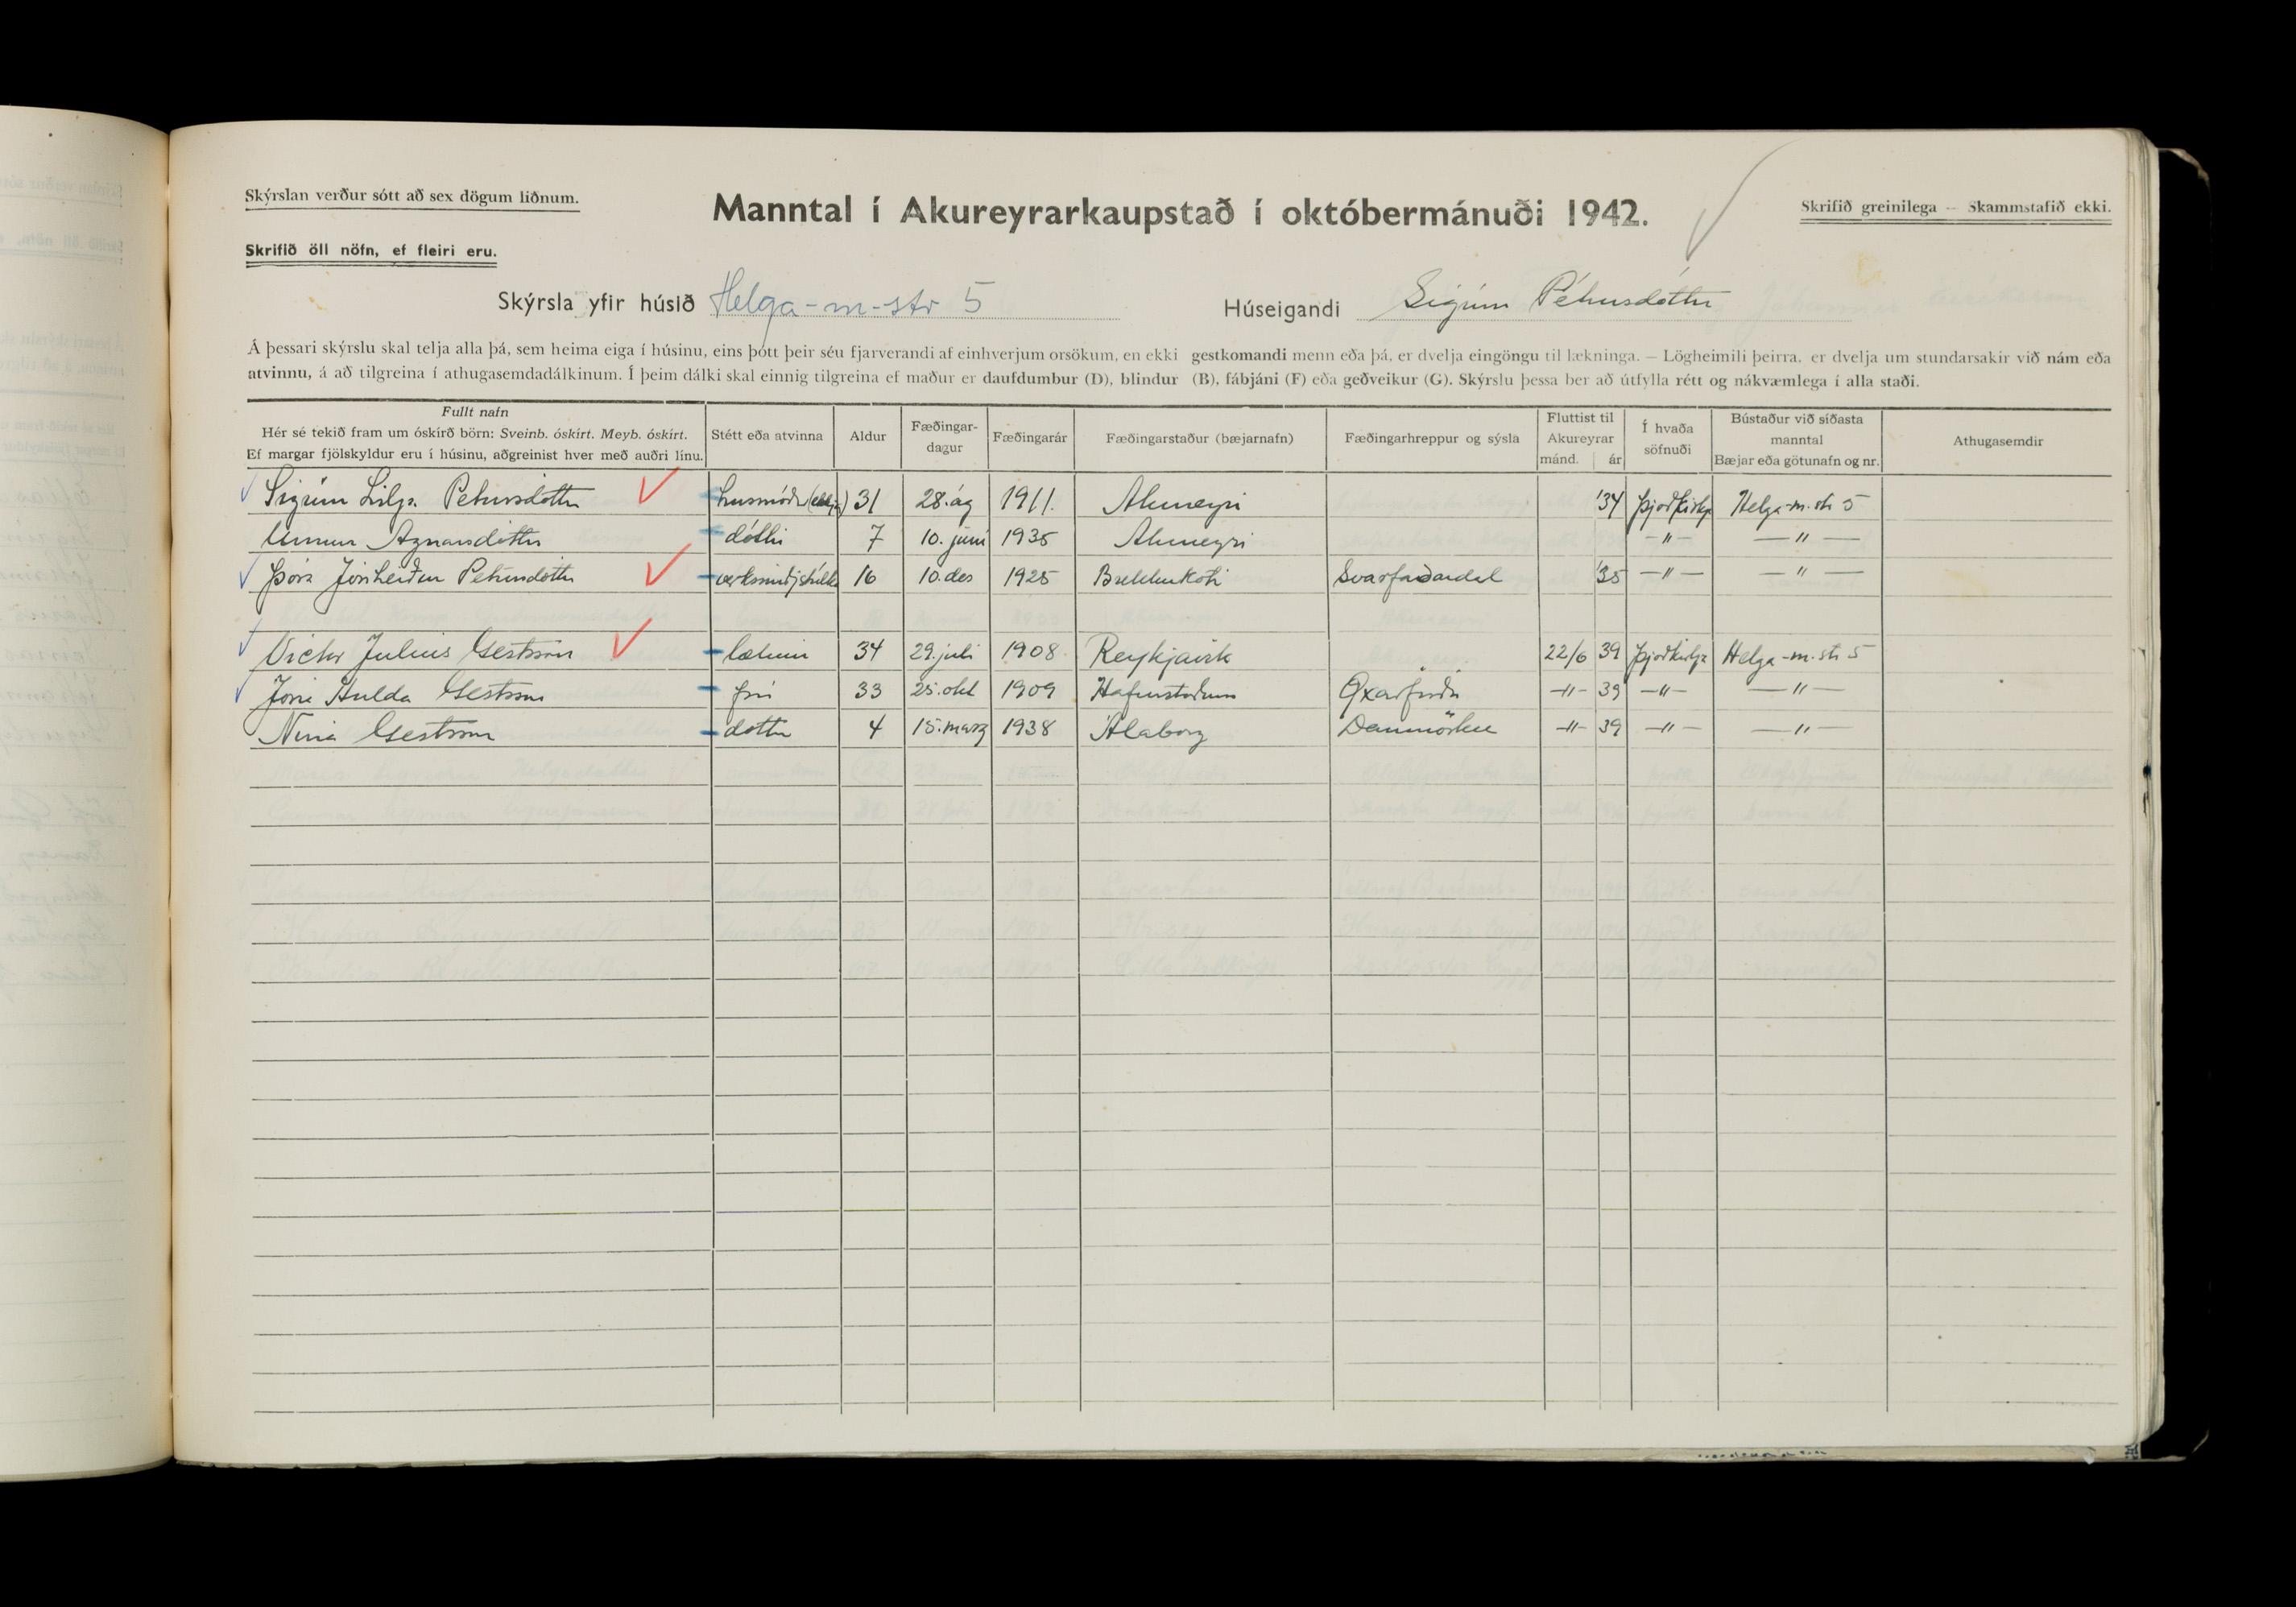 Skýrslan verður sótt að sex dögum liðnum.
Manntal í Akureyrarkaupstað í októbermánuði 1942.
Skrifið greinilega — Skammstafið ekki.
Skrifið öll nöfn, ef fleiri eru.
Skýrsla yfir húsið Helga-m-str 5 Húseigandi Sigrún Pétursdóttir
Á þessari skýrslu skal telja alla þá, sem heima eiga í húsinu, eins þótt þeir séu fjarverandi af einhverjum orsökum, en ekki gestkomandi menn eða þá, er dvelja eingöngu til lækninga. — Lögheimili þeirra, er dvelja um stundarsakir við nám eða
atvinnu, á að tilgreina í athugasemdadálkinum. Í þeim dálki skal einnig tilgreina ef maður er daufdumbur (D), blindur (B), fábjáni (F) eða geðveikur (G). Skýrslu þessa ber að útfylla rétt og nákvæmlega í alla staði.
Fullt nafn
Hér sé tekið fram um óskírð börn: Sveinb. óskírt. Meyb. óskírt.
Ef margar fjölskyldur eru í húsinu, aðgreinist hver með auðri línu.
Stétt eða atvinna
Aldur
Fæðingar-
dagur
Fæðingarár
Fæðingarstaður (bæjarnafn)
Fæðingarhreppur og sýsla
Fluttist til
Akureyrar
mánd. ár
Í hvaða
söfnuði
Bústaður við síðasta
manntal
Bæjar eða götunafn og nr.
Athugasemdir
Sigrún Lilja Pétursdóttir húsmóðir (ekkja) 31 28. ág 1911. Akureyri '34 Þjóðkirkj Helga-m. str 5
Unnur Agnarsdóttir dóttir 7 10. júní 1935 Akureyri —〃— —〃—
Þóra Jónheiður Pétursdóttir verksmiðjstúlka 16 10. des 1925 Brekkukoti Svarfaðardal '35 —〃— —〃—
Victor Julius Gestsson læknir 34 29. júli 1908 Reykjavik 22/6 39 Þjóðkirkja Helga-m. str 5
Hulda Gestsson frú 33 25. okt 1909 Öxarfirði —〃— 39 —〃— —〃—
Nina Gestsson dóttir 4 15. marz 1938 Álaborg Danmörku —〃— 39 —〃— —〃—